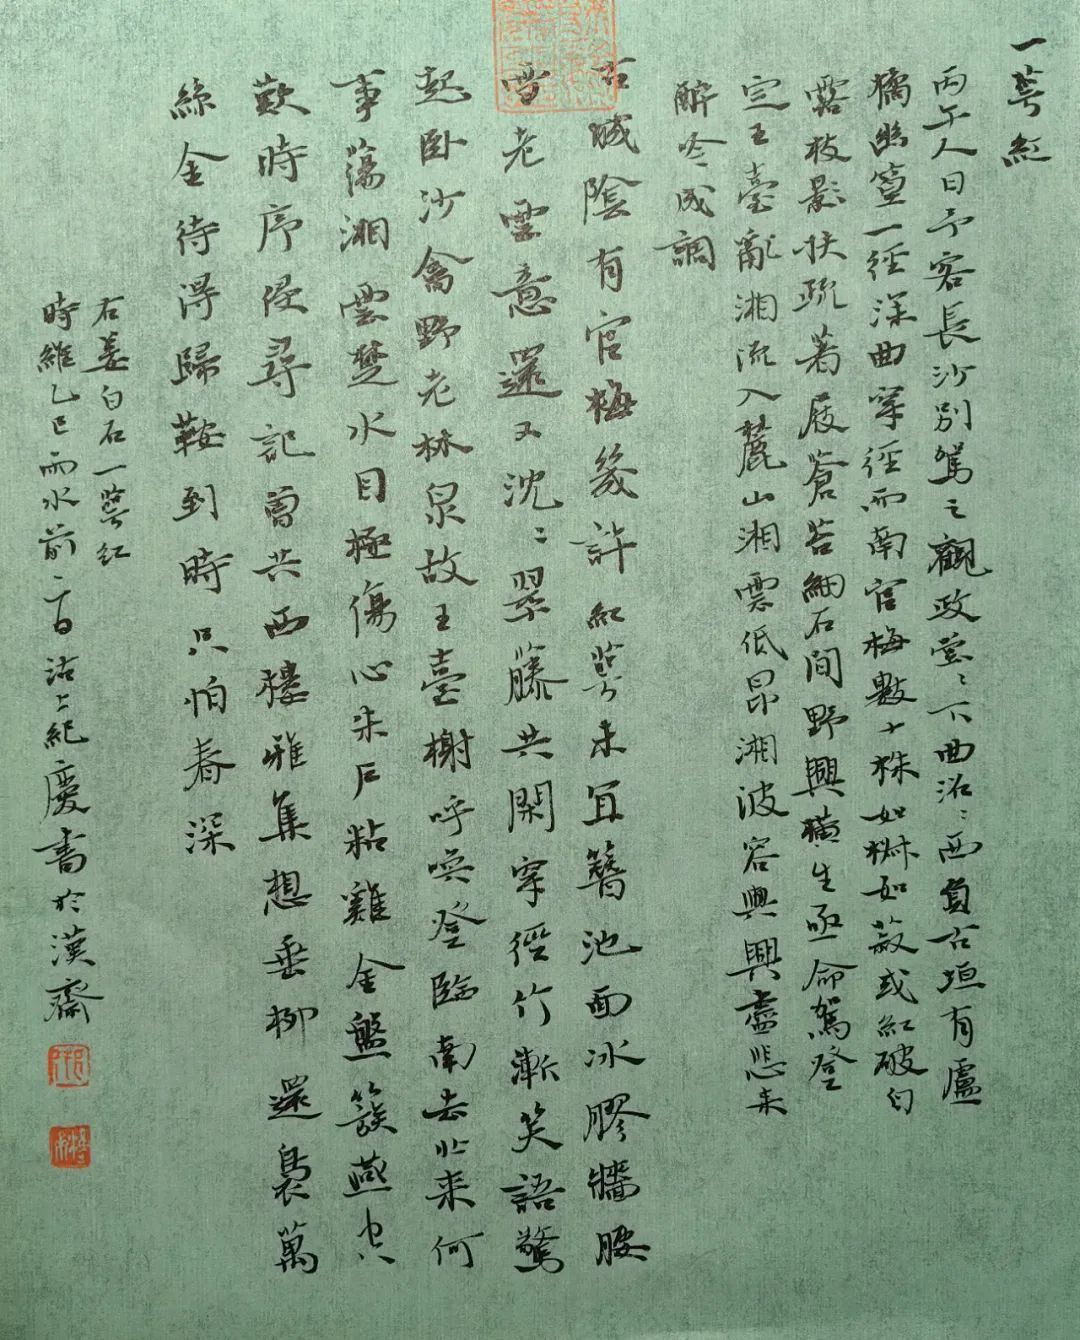 一萼紅
丙午人日予客長沙別駕之觀政堂〻下曲沼〻西負古垣有盧
橘幽篁一徑深曲穿徑而南官梅數十株如椒如菽或紅破白
露枝影扶疏著屐蒼苔細石間野興橫生亟命駕登
定王臺亂湘流入麓山湘雲低昂湘波容與興盡悲來
醉吟成調
古城陰有官梅幾許紅萼未宜簪池面冰膠牆腰
雪老雲意還又沈〻翠藤共閑穿徑竹漸笑語驚
起臥沙禽野老林泉故王臺榭呼喚登臨南去北來何
事蕩湘雲楚水目極傷心朱戶粘雞金盤簇燕空
歎時序侵尋記曾共西樓雅集想垂柳還裊萬
絲金待得歸鞍到時只怕春深
右姜白石一萼紅
時維乙巳雨水前二日沽上紀慶書於漢齋